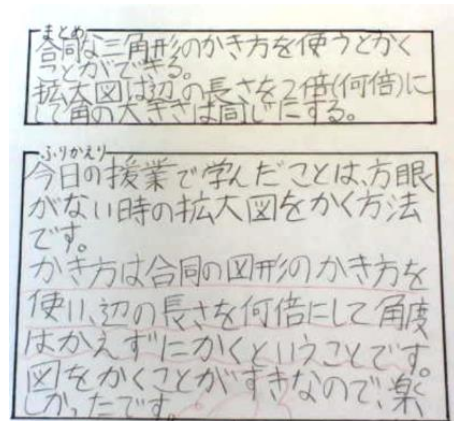 まとめ
合同な三角形のかき方を使うとかく
ことができる。
拡大図は辺の長さを2倍(何倍)に
して角の大きさは同じにする。
ふりかえり
今日の授業で学んだことは、方眼
がない時の拡大図をかく方法
です。
かき方は合同の図形のかき方を
使い、辺の長さを何倍にして角度
はかえずにかくということです。
図をかくことがすきなので、楽
しかったです。